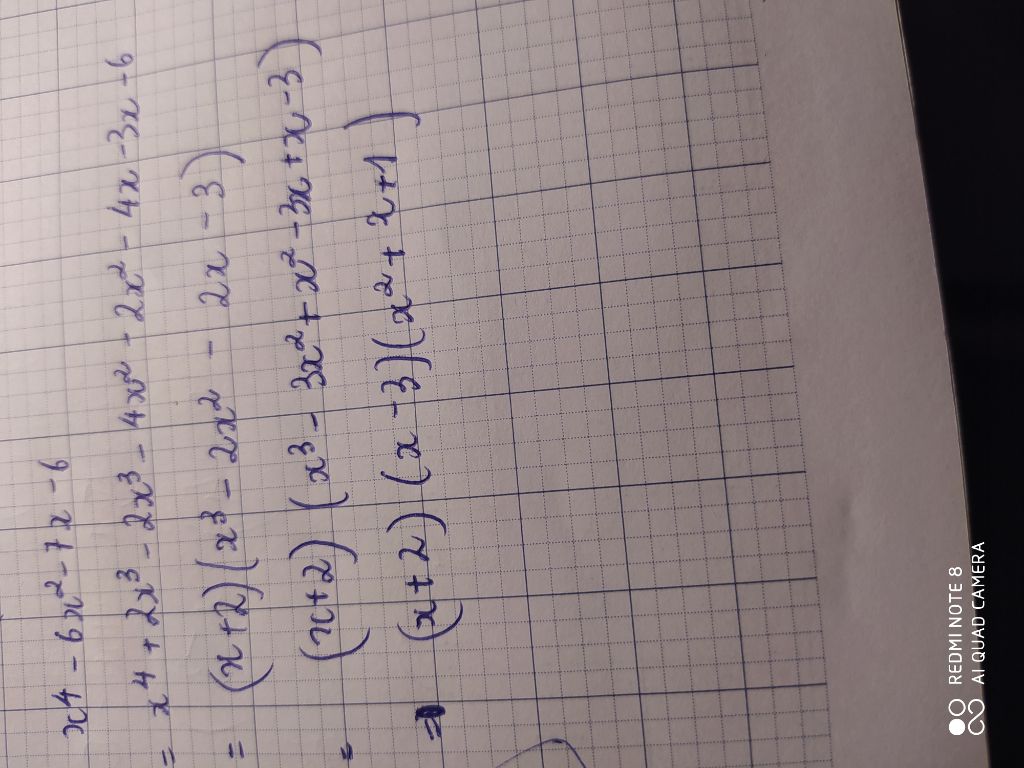 x⁴ - 6x² - 7x - 6
= x⁴ + 2x³ - 2x³ - 4x² - 2x² - 4x - 3x - 6
= (x+2)(x³ - 2x² - 2x - 3)
= (x+2)(x³ - 3x² + x² - 3x + x - 3)
= (x+2)(x-3)(x² + x + 1)
REDMI NOTE 8
AI QUAD CAMERA